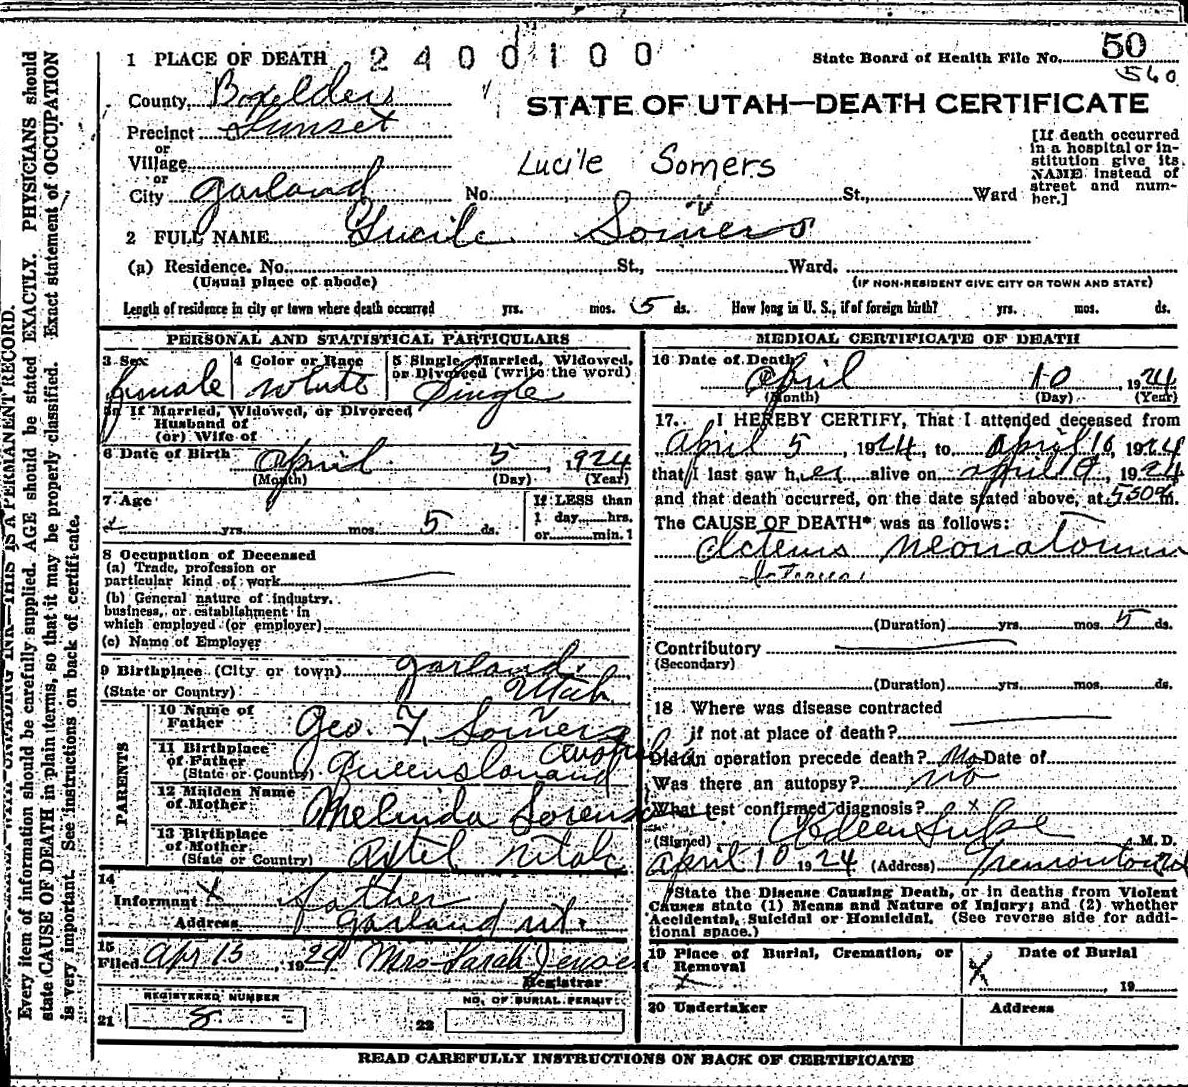 1 PLACE OF DEATH 2400100 State Board of Health File No. 50
560
County Boxelder
STATE OF UTAH—DEATH CERTIFICATE
Precinct Sunset
or
Village
or
City Garland No. St., Ward
Lucile Somers
[If death occurred
in a hospital or in-
stitution give its
NAME instead of
street and num-
ber.]
2 FULL NAME Lucile Somers
(a) Residence. No. St., Ward.
(Usual place of abode) (IF NON-RESIDENT GIVE CITY OR TOWN AND STATE)
Length of residence in city or town where death occurred yrs. mos. 5 ds. How long in U. S., if of foreign birth? yrs. mos. ds.
PERSONAL AND STATISTICAL PARTICULARS
3 Sex
female
4 Color or Race
White
5 Single, Married, Widowed,
or Divorced (write the word)
Single
5a If Married, Widowed, or Divorced
Husband of
(or) Wife of
6 Date of Birth April 5, 1924
(Month) (Day) (Year)
7 Age
yrs. mos. 5 ds.
If LESS than
1 day......hrs.
or......min.?
8 Occupation of Deceased
(a) Trade, profession or
particular kind of work
(b) General nature of industry,
business, or establishment in
which employed (or employer)
(c) Name of Employer
9 Birthplace (City or town) Garland.
(State or Country) Utah
PARENTS
10 Name of
Father Geo. F. Somers
11 Birthplace
of Father
(State or Country) Queensland
12 Maiden Name
of Mother Melinda Sorensen
13 Birthplace
of Mother
(State or Country) Utah
14
Informant X father
Address Garland Ut.
15
Filed Apr 13, 1924 Mrs Sarah Jensen
Registrar
REGISTERED NUMBER
21 8
NO. OF BURIAL PERMIT
22
MEDICAL CERTIFICATE OF DEATH
16 Date of Death
April 10, 1924
(Month) (Day) (Year)
17. I HEREBY CERTIFY, That I attended deceased from
April 5, 1924, to April 10, 1924
that I last saw her alive on April, 1924
and that death occurred, on the date stated above, at m.
The CAUSE OF DEATH* was as follows:
Icterus Neonatorum
Icterus
(Duration) yrs. mos. 5 ds.
Contributory
(Secondary)
(Duration) yrs. mos. ds.
18 Where was disease contracted
if not at place of death?
Did an operation precede death? No Date of
Was there an autopsy? no
What test confirmed diagnosis? X
(Signed) M. D.
April 10 1924 (Address) Tremonton
*State the Disease Causing Death, or in deaths from Violent
Causes state (1) Means and Nature of Injury; and (2) whether
Accidental, Suicidal or Homicidal. (See reverse side for addi-
tional space.)
19 Place of Burial, Cremation, or
Removal
X
Date of Burial
X , 19
20 Undertaker
Address
READ CAREFULLY INSTRUCTIONS ON BACK OF CERTIFICATE
Every item of information should be carefully supplied. AGE should be stated EXACTLY. PHYSICIANS should
state CAUSE OF DEATH in plain terms, so that it may be properly classified. Exact statement of OCCUPATION
is very important. See instructions on back of certificate.